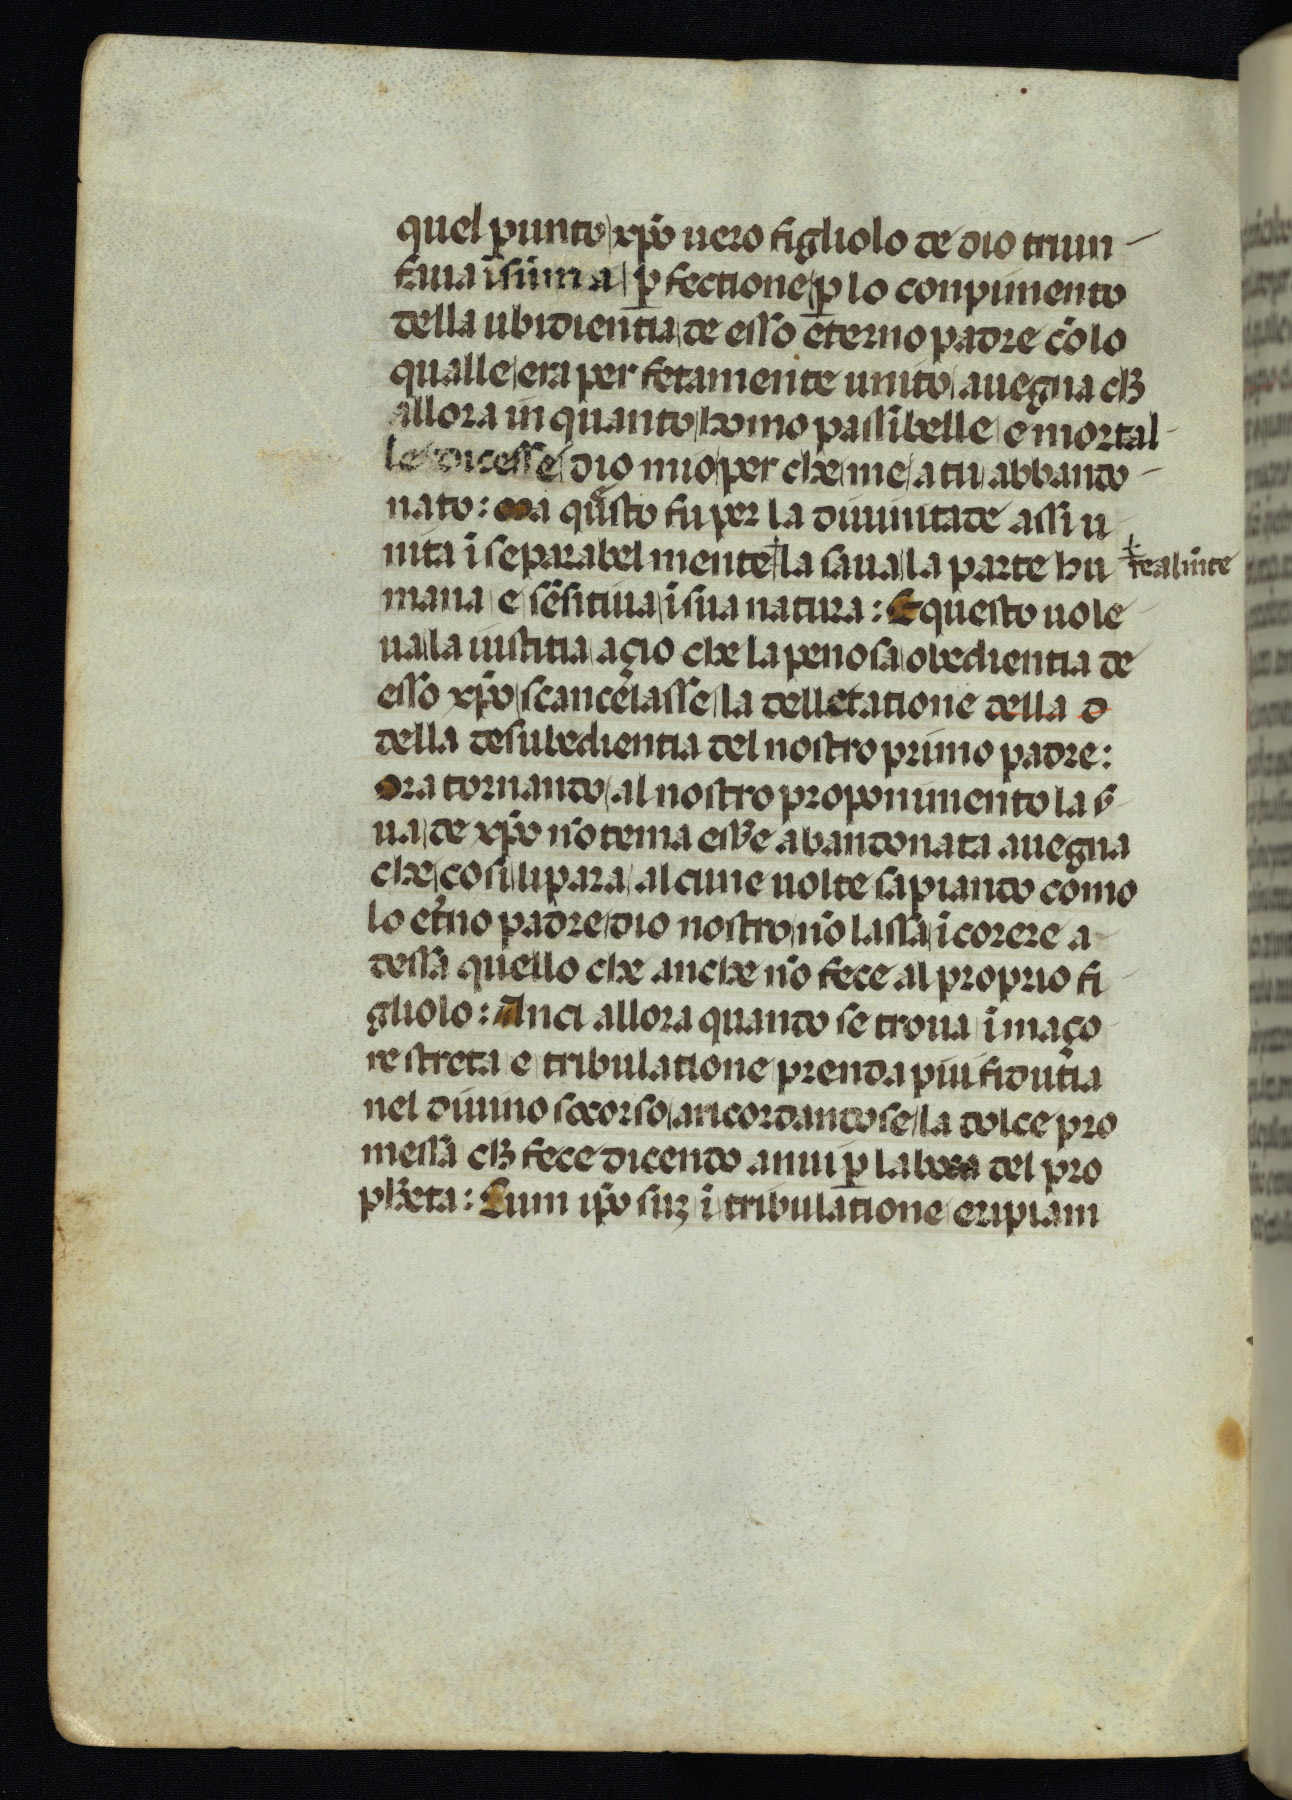 quel punto xp̄o uero figliolo de dio triun
faua ī sūma p̱fectione p̱ lo conpimento
della ubidientia de esso eterno padre cōlo
qualle era perfetamente unito auegna ch̄
allora in quanto homo passibelle e mortal
le dicesse dio mio per che me a tu abbando
nato: ma qͣsto fu per la diuinitade assi u
nita ī separabel mente la saua la parte hu realm̄te
mana e sēsitiua ī sua natura: E questo uole
ua la iustitia açio che la penosa obedientia de
esso xp̄o scancelasse la delletatione della d
della desubedientia del nostro primo padre:
ora tornando al nostro proponimento la s̄
ua de xp̄o nō tema ess̄e abandonata auegna
che cosi li para alcune uolte sapiando como
lo et̄no padre dio nostro nō lassa ī corere a
dessa quello che anche nō fece al proprio fi
gliolo: Anci allora quando se troua ī maço
re streta e tribulatione prenda piu fidutia
nel diuino socorso aricordandose la dolce pro
messa ch̄ fece dicendo a nui p̱ la boca del pro
pheta: Cum ip̄o suꝫ ī tribulatione eripiam